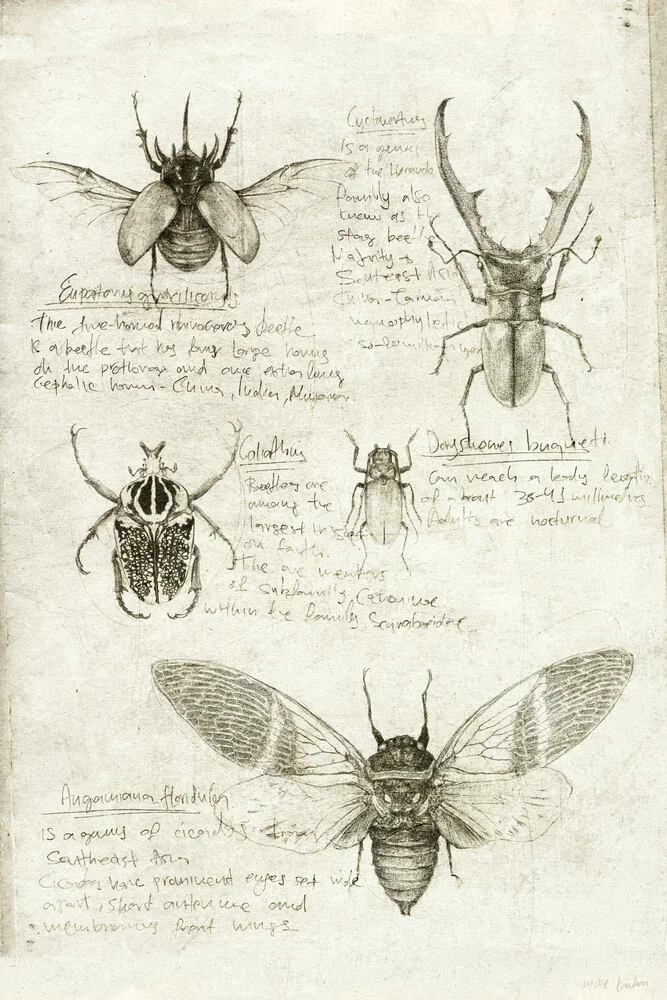 Eupatorus gracilicornis
The five-horned rhinocerous beetle
is a beetle that has four large horns
on the prothorax and one extra long
cephalic horn - China, India,
Cyclommatus
Is a genus
of the
family also
known as the
stag beetle
Majority
Southeast Asia
Goliathus
Beetles are
among the
largest insects
on Earth.
The are members
of subfamily Cetoniinae
within the family Scarabaeidae
can reach a body length
of about 38-41 millimetres
Adults are nocturnal
Angamiana floridula
is a genus of cicadas from
Southeast Asia
Cicadas have prominent eyes set wide
apart, short antennae and
membranous front wings